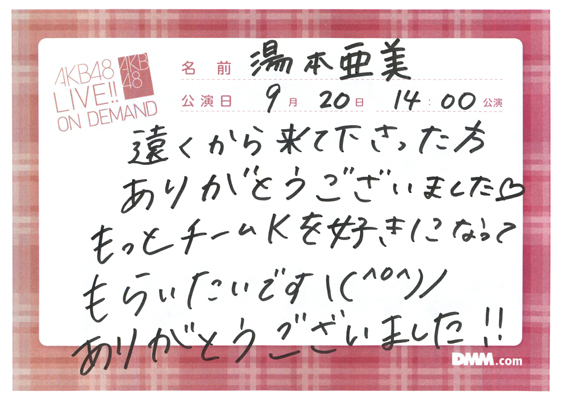 AKB48
LIVE!!
ON DEMAND
AKB
48
名前 湯本亜美
公演日 9月20日 14:00公演
遠くから来て下さった方
ありがとうございました♡
もっとチームKを好きになって
もらいたいです\(^o^)/
ありがとうございました!!
DMM.com